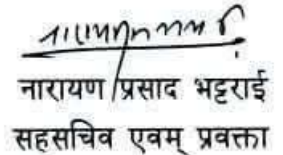 नारायण प्रसाद भट्टराई
सहसचिव एवम् प्रवक्ता